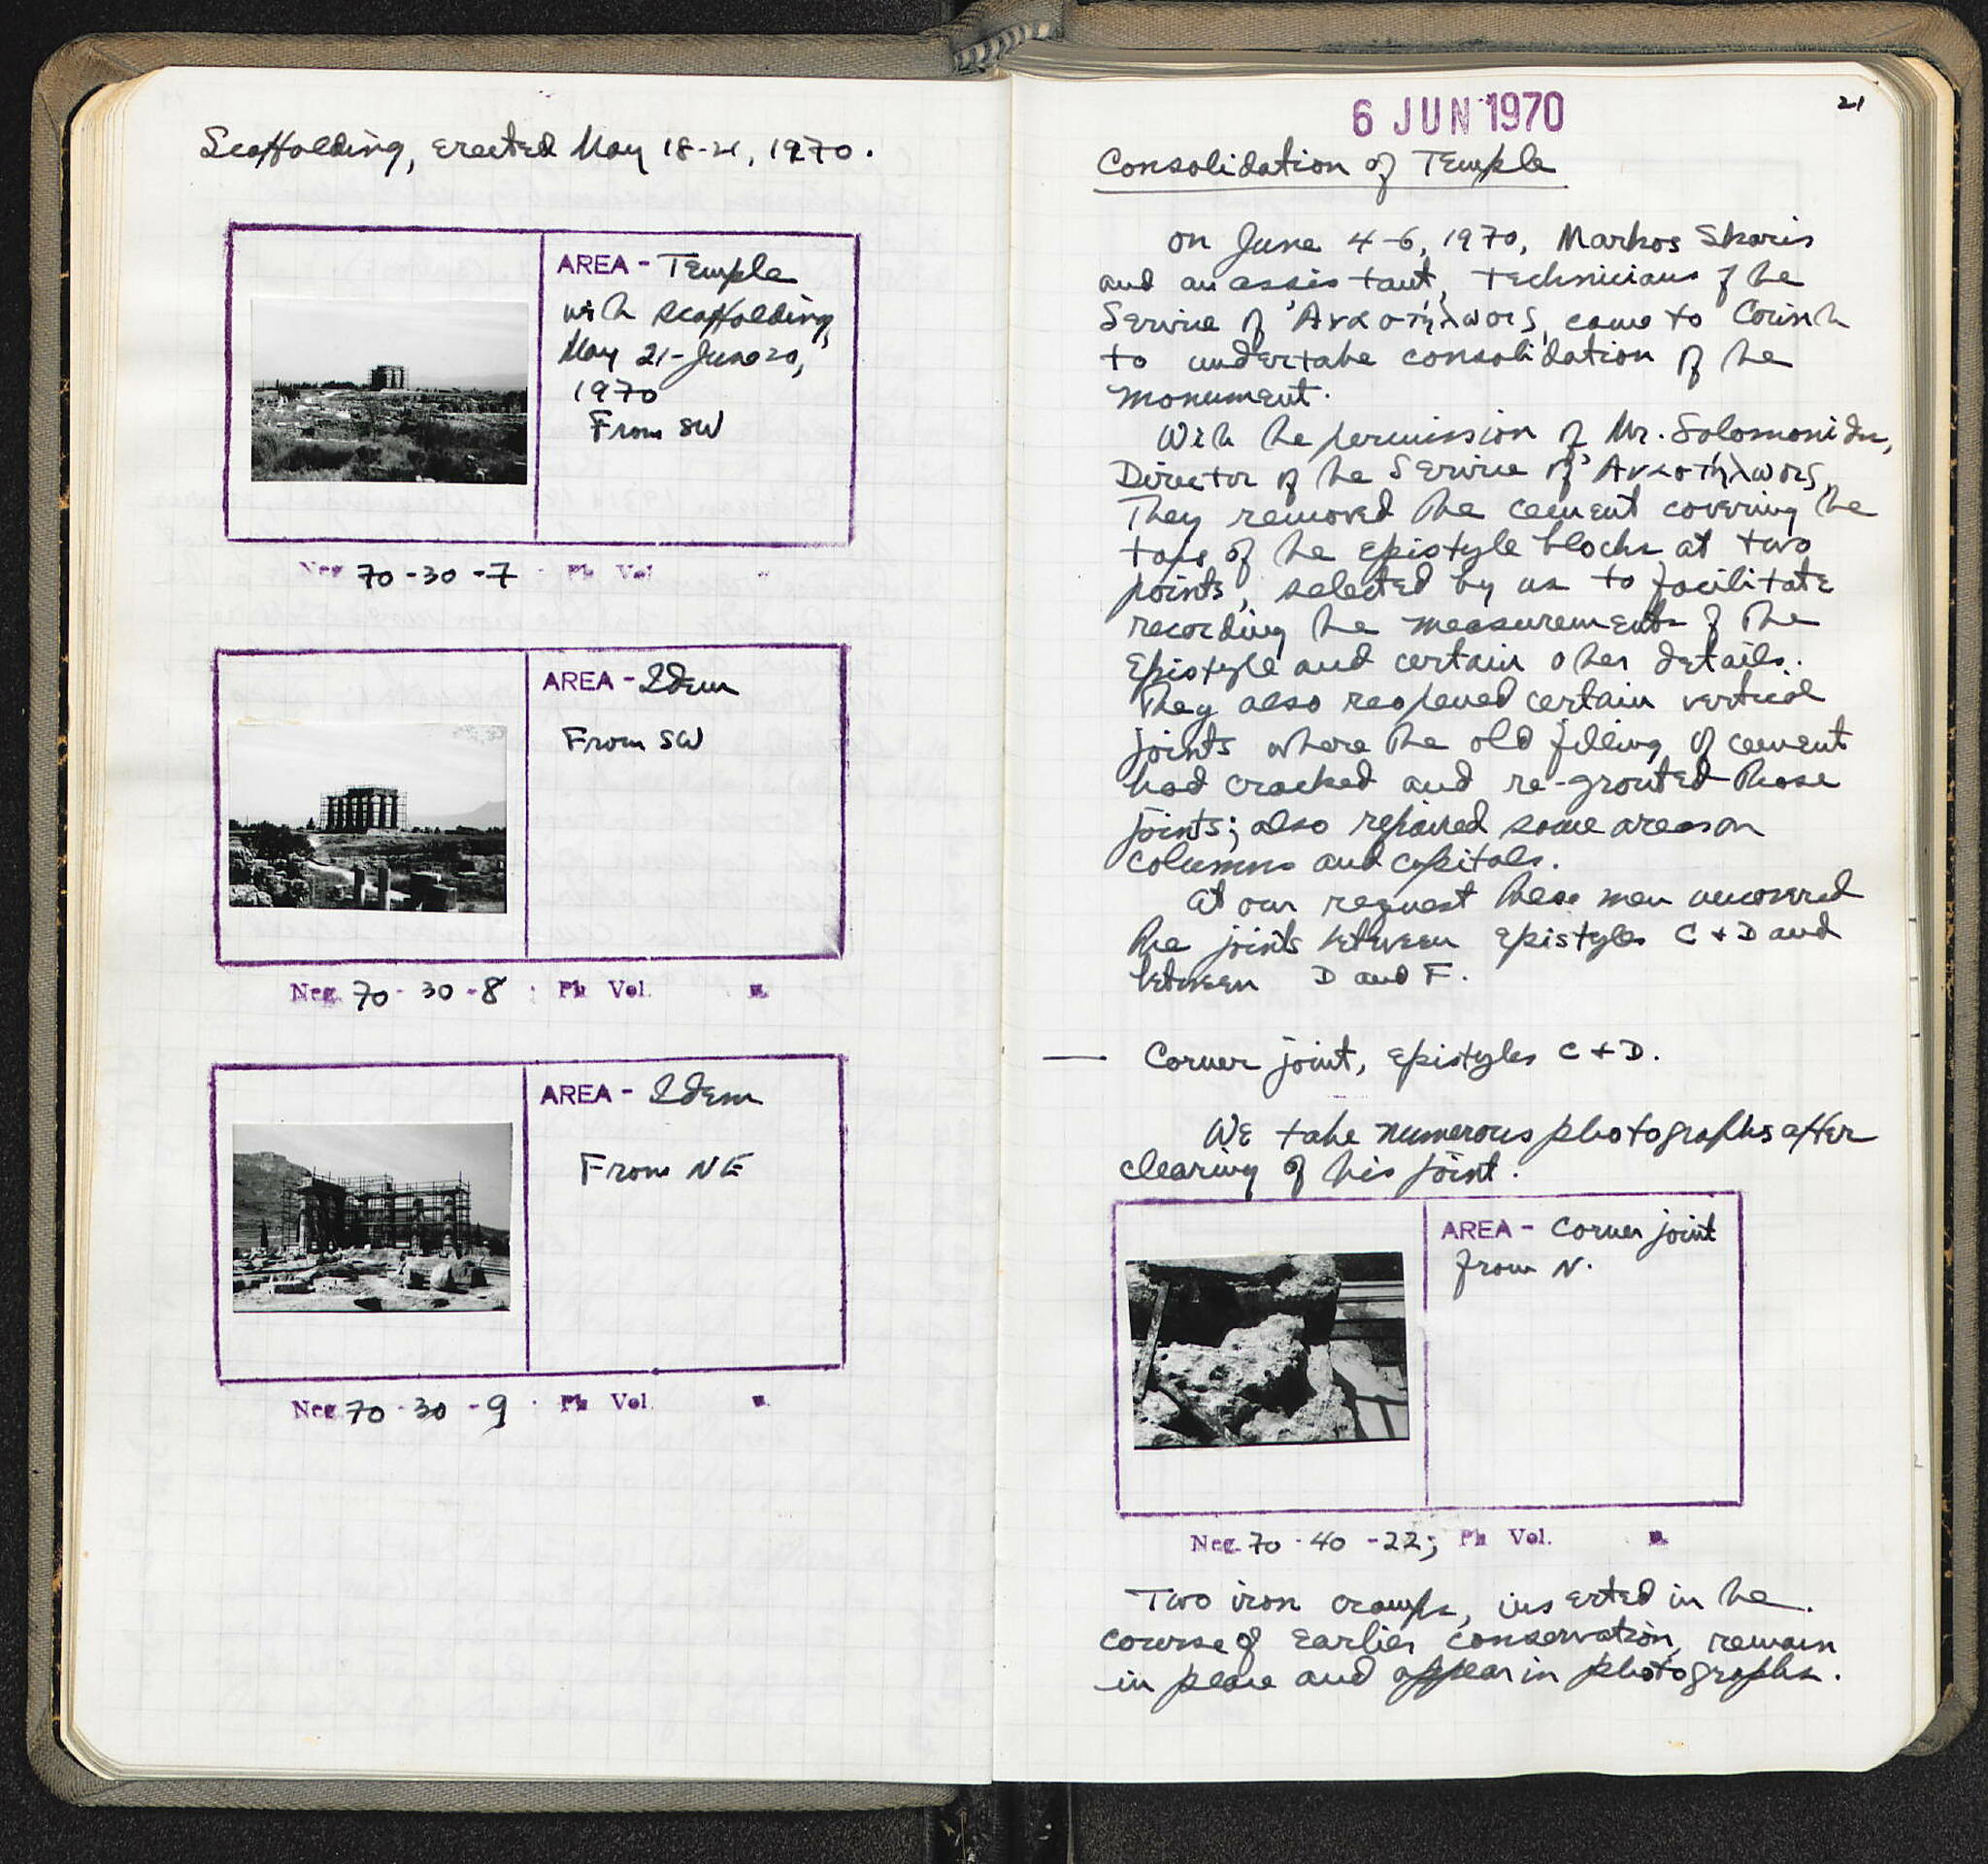 Scaffolding, erected May 18-21, 1970.
AREA - Temple
with scaffolding,
May 21-June 20,
1970
From SW
Neg. 70-30-7 Ph Vol.
AREA - Idem
From SW
Neg. 70-30-8 ; Ph Vol.
AREA - Idem
From NE
Neg. 70-30-9 Ph Vol.
21
6 JUN 1970
Consolidation of Temple
On June 4-6, 1970, Markos Skaris
and an assistant, technicians of the
Service of came to Corinth
to undertake consolidation of the
monument.
With the permission of Mr.
Director of the Service of
They removed the cement covering the
tops of the epistyle blocks at two
points, selected by us to facilitate
recording the measurements of the
epistyle and certain other details.
They also reopened certain vertical
joints where the old filling of cement
had cracked and re-grouted those
joints; also repaired some areas on
columns and capitals.
At our request these men uncovered
the joints between epistyles C + D and
between D and F.
— Corner joint, epistyles C + D.
We take numerous photographs after
clearing of this joint.
AREA - Corner joint
from N.
Neg. 70-40-22; Ph Vol.
Two iron cramps, inserted in the
course of earlier conservation, remain
in place and appear in photographs.